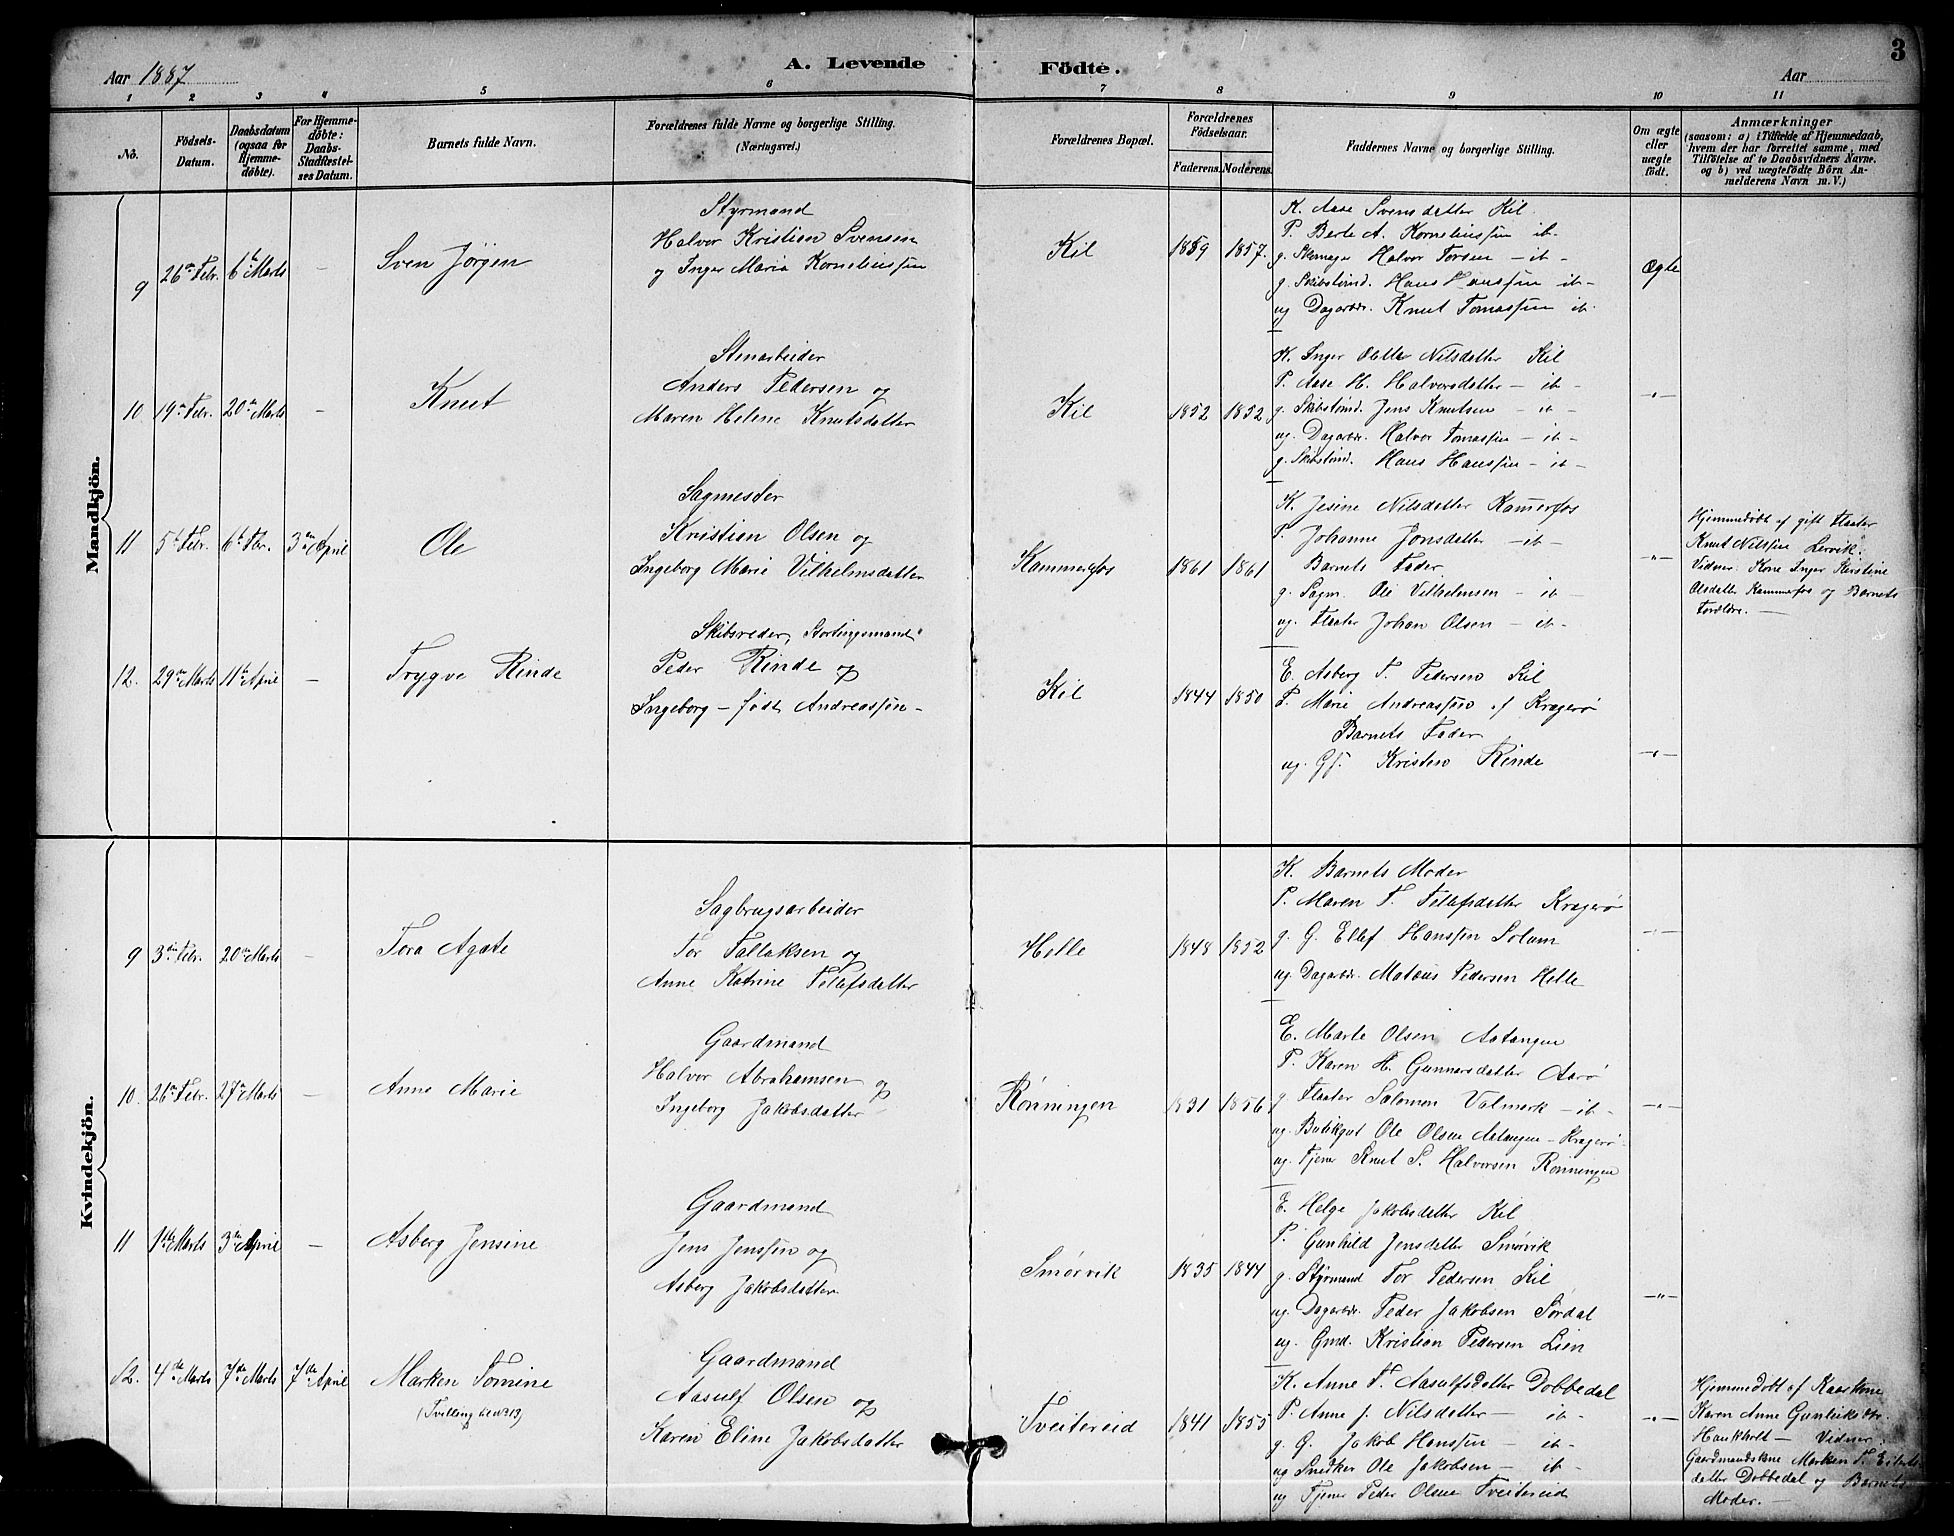 3
Aar 1887
A. Levende Födte.
Aar
1 2 3 4 5 6 7 8 9 10 11
No.
Födsels-Datum.
Daabsdatum (ogsaa for Hjemme-døbte).
For Hjemme-døbte: Daabs-Stadfæstel-ses Datum.
Barnets fulde Navn.
Forældrenes fulde Navne og borgerlige Stilling.
(Næringsvei.)
Forældrenes Bopæl.
Forældrenes Födselsaar.
Faderens. Moderens.
Faddernes Navne og borgerlige Stilling.
Om ægte eller uægte födt.
Anmærkninger
(saasom: a) i Tilfælde af Hjemmedaab,
hvem der har forrettet samme, med
Tilföielse af to Daabsvidners Navne.
og b) ved uægtefödte Börn An-
melderens Navn m. V.)
Mandkjön.
9 26de Febr. 6te Marts - Sven Jørgen
Styrmand
Halvor Kristian Svensen
og Inger Maria Korneliussen
Kil 1859 1857.
K. Aase Svensdatter Kil
P. Berte A. Korneliussen it-
g. Skomager Halvor Torsen - it-
g. Skibstømd. Hans Hanssen it-
ug Dagarbr. Knut Tomassen it-
Ægte
10. 19de Febr. 20de Marts - Knut
Stenarbeider
Anders Pedersen og
Maren Helene Knutsdatter
Kil 1852 1852
K. Inger Oblle Nilsdatter Kil
P. Aase H. Halvorsdatter - it-
g. Skibstømd. Jens Knutsen - it-
ug. Dagarbr. Halvor Tomassen - it-
g. Skibstømd. Hans Hanssen - it-
-"-
11 5te Febr. 6te Febr. 3die April Ole
Sagmester
Kristian Olsen og
Ingeborg Marie Vilhelmsdatter
Kammerfos 1861 1861
K. Jesine Nilsdatter Kamerfos
P. Johanne Jonsdatter - it-
Barnets Fader
g. Sagm. Ole Vilhelmsen - it-
ug. Flaater Johan Olsen - it-
-"-
Hjemmedøbt af gift Flaater
Knut Nilssen Lervik.
Vidner: Kone Inger Kirstine
Olsdatter Kammerfos og Barnets
Forældre. -
12. 29de Marts 11te April - Trygve Rinde
Skibsreder, Stortingsmand
Peder Rinde og
Ingeborg - født Andreassen -
Kil 1844 1850
E. Asberg T. Pedersen Kil
P. Marie Andreassen af Kragerø
Barnets Fader
ug. Gf. Kristen Rinde
-"-
Kvindekjön.
9 3die Febr. 20de Marts - Tora Agate
Sagbrugsarbeider
Tor Tallaksen og
Anne Katrine Telafsdatter
Helle 1848 1852
K. Barnets Moder
P. Maren T. Telafsdatter Kragerø
g. G. Ellef Hanssen Solum
ug. Dagarbr. Mateus Pedersen Helle
-"-
10. 26de Febr. 27de Marts - Anne Marie
Gaardmand
Halvor Abrahamsen og
Ingeborg Jakobsdatter
Rønningen 1831 1856
E. Marte Olsen Aatangen
P. Karen H. Gunnarsdatter Aarø
g. Flaater Salomon Valmerk - it-
ug. Butikgut Ole Olsen Aatangen - Kragerø
ug. Tjener Knut S. Halvorsen Rønningen
-"-
11 1ste Marts 3die April - Asberg Jensine
Gaardmand
Jens Jenssen og
Asberg Jakobsdatter
Smørvik 1835 1844
E. Helge Jakobsdatter Kil
P. Gunhild Jensdatter Smørvik
g. Styrmand Tor Pedersen Kil
ug. Dagarbr. Peder Jakobsen Sørdal
ug. Gmd. Kristian Pedersen Lien
-"-
12. 4de Marts 7de Marts 7de April Marken Tomine
(Tvilling til No 13)
Gaardmand
Aasulf Olsen og
Karen Eline Jakobsdatter
Tveitereid 1841 1855
K. Anne T. Aasulfsdatter Dobbedal
P. Anne J. Nilsdatter - it-
g. G. Jakob Hanssen - it-
ug Snedker Ole Jakobsen - it-
ug Tjener Peder Olsen Tveitereid
-"-
Hjemmedøbt af
Karen Anne Gunleiksdtr.
Haukholt - Vidner:
Gaardmandskone Marken T.
datter Dobbedal og Barnets
Moder. -